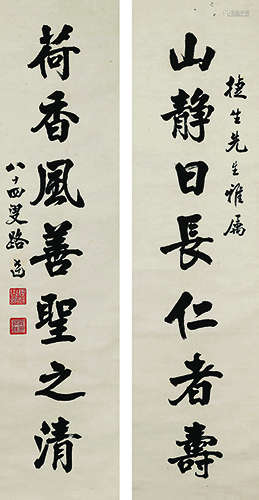 山静日長仁者壽
捷生先生雅屬
荷香風善聖之清
八十四叟路